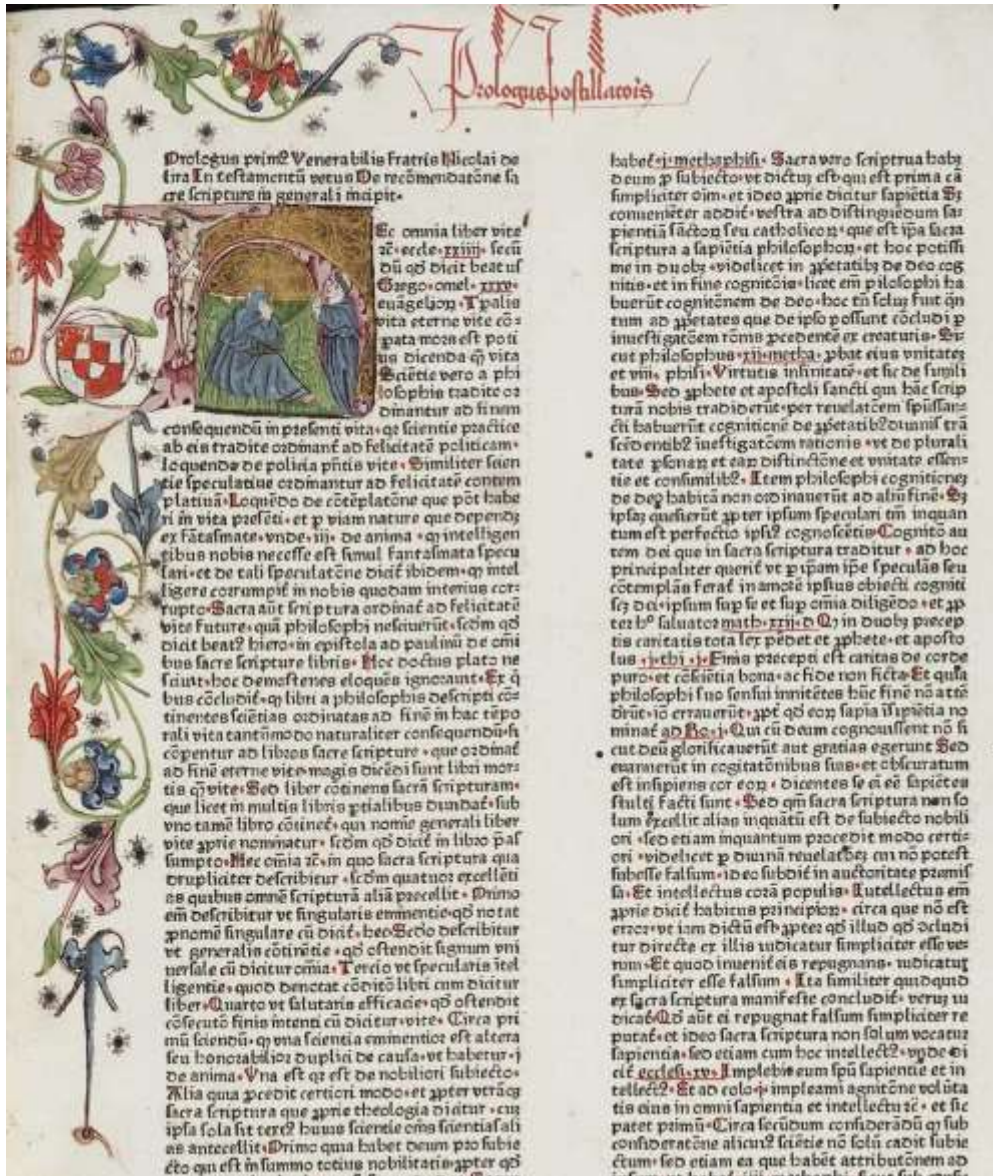 Prologus postillatõis
Prologus primꝰ Venerabilis fratris Nicolai de
lira In testamentũ vetus De recõmendatõne sa
cre scripture in generali incipit·
HEc omnia liber vite
ꝛc̄·eccle·xxiiij·secũ
dũ qd̄ dicit beatus
Grego·omel·xxxv·
euãgelioꝝ·Tpalis
vita eterne vite cõ⸗
pata mors est poti
us dicenda qȝ vita
Sciẽtie vero a phi
losophis tradite or
dinantur ad finem
consequendũ in presenti vita·qꝛ scientie practice
ab eis tradite ordinant̄ ad felicitatẽ politicam·
loquendo de policia pñtis vite·Similiter scien
tie speculatiue ordinantur ad felicitatẽ contem
platiuã·Loquẽdo de cõtẽplatõne que põt habe
ri in vita presẽti·et ꝑ viam nature que dependȝ
ex fãtasmate·vnde·iij·de anima·qȝ intelligen
tibus nobis necesse est simul fantasmata specu
lari·et de tali speculatõne dicit̄ ibidem·qȝ intel
ligere corrumpit̄ in nobis quodam interius cor⸗
rupto·Sacra aũt scriptura ordinat̄ ad felicitatẽ
vite future·quã philosophi nesciuerũt·scdm qd̄
dicit beatꝰ hiero·in epistola ad paulinũ de omi
bus sacre scripture libris·Hoc doctus plato ne
sciuit·hoc demostenes eloquẽs ignorauit·Ex q̃
bus cõcludit̄·qȝ libri a philosophis descripti cõ⸗
tinentes sciẽtias ordinatas ad finẽ in hac tẽpo
rali vita tantũmodo naturaliter consequendũ·si
cõpentur ad libros sacre scripture·que ordinat̄
ad finẽ eterne vite·magis dicẽdi sunt libri mor⸗
tis q̃ vite·Sed liber cõtinens sacrã scripturam·
que licet in multis libris ꝑtialibus diuidat̄·sub
vno tamẽ libro cõtinet̄·qui nomĩe generali liber
vite ꝓprie nominatur·scdm qd̄ dicit̄ in libro p̃as
sumpto·Hec omĩa ꝛc̄·in quo sacra scriptura qua
drupliciter describitur·scdm quatuor excellẽti
as quibus omnẽ scripturã aliã precellit·Primo
em̃ describitur vt singularis eminentie·qd̄ notat
ꝓnomẽ singulare cũ dicit̄·hec·Scdo describitur
vt generalis cõtinẽtie·qd̄ ostendit signum vni
uersale cũ dicitur omĩa·Tercio vt specularis ĩtel
ligentie·quod denotat cõditõ libri cum dicitur
liber·Quarto vt salutaris efficacie·qd̄ ostendit
cõsecutõ finis intenti cũ dicitur·vite·Circa pri
mũ sciendũ·qȝ vna scientia eminentior est altera
seu honorabilior duplici de causa·vt habetur·j
de anima·Vna est qꝛ est de nobiliori subiecto·
Alia quia ꝓcedit certiori modo·et ꝓpter vtrãqȝ
sacra scriptura que ꝓprie theologia dicitur·cuȝ
ipsa sola sit textꝰ huius scientie om̃s scientias ali
as antecellit·Primo quia habet deum pro subie
cto qui est in summo totius nobilitatis·ꝓpter qd̄
habet̄·j·methaphisi·Sacra vero scriptrua habȝ
deum ꝓ subiecto·vt dictuȝ est·qui est prima cã
simpliciter oĩm·et ideo ꝓprie dicitur sapiẽtia Sȝ
conueniẽter addit̄·vestra ad distinguẽdum sa⸗
pientiã sãctoꝝ seu catholicoꝝ·que est ip̃a sacra
scriptura a sapiẽtia philosophoꝝ·et hoc potissi
me in duobȝ·videlicet in ꝓpetatibȝ de deo cog
nitis·et in fine cognitõis·licet em̃ philosophi ha
buerũt cognitõnem de deo·hoc tñ soluȝ fuit q̃n
tum ad ꝓpetates que de ipso possunt cõcludi ꝑ
inuestigatõem rõnis ꝓcedentẽ ex creaturis·Si⸗
cut philosophus·xij·metha·ꝓbat eius vnitatez
et viij·phisi·Virtutis infinitatẽ·et sic de simili
bus·Sed ꝓphete et apostoli sancti qui hãc scrip
turã nobis tradiderũt·per reuelatõem spũssan⸗
cti habuerũt cognitionẽ de ꝓpetatibꝰ diuinis trã
scẽdentibꝰ inuestigatõem rationis·vt de plurali
tate ꝑsonaꝝ et eaꝝ distinctõne et vnitate essen⸗
tie et consimilibꝰ·Item philosophi cognitionez
de deo habitã non ordinauerũt ad aliũ finẽ·Sȝ
ipsaȝ quesierũt ꝓpter ipsum speculari tm̃ inquan
tum est perfectio ipsiꝰ cognoscẽtis·Cognitõ au
tem dei que in sacra scriptura traditur·ad hoc
principaliter querit̄ vt ꝑ ip̃am ip̃e speculãs seu
cõtemplãs ferat̄ in amorẽ ipsius obiecti cogniti
scȝ dei·ipsum sup se et sup omĩa diligẽdo·et ꝓp
ter hº saluator math·xxij·d Qȝ in duobȝ precep
tis caritatis tota lex pẽdet et ꝓphete·et aposto
lus·j·thi·j·Finis precepti est caritas de corde
puro·et cõsciẽtia bona·ac fide non ficta·Et quia
philosophi suo sensui innitẽtes hũc finẽ nõ attẽ
derũt·iõ errauerũt·ꝓpt̄ qd̄ eoꝝ sapĩa ĩsipiẽtia no
minat̄ ad Ro·j·Qui cũ deum cognouissent nõ si
cut deũ glorificauerũt aut gratias egerunt Sed
euanuerũt in cogitatõnibus suis·et obscuratum
est insipiens cor eoꝝ·dicentes se eĩ eẽ sapiẽtes
stulti facti sunt·Sed qm̃ sacra scriptura non so
lum excellit alias inquãtũ est de subiecto nobili
ori·sed etiam inquantum procedit modo certi⸗
ori·videlicet ꝑ diuinã reuelatõeȝ cui nõ potest
subesse falsum·ideo subdit̄ in auctoritate premis
sa·Et intellectus corã populis·Iutellectus em̃
ꝓprie dicit̄ habitus principioꝝ·circa que nõ est
error·vt iam dictũ est·ꝓpter qd̄ illud qd̄ ↄcludi
tur directe ex illis iudicatur simpliciter esse ve⸗
rum·Et quod inuenit̄ eis repugnans·iudicatur
simpliciter esse falsum·Ita similiter quidquid
ex sacra scriptura manifeste concludit̄·veruȝ iu
dicat̄·Qd̄ aũt ei repugnat falsum simpliciter re
putat̄·et ideo sacra scriptura non solum vocatur
sapientia·sed etiam cum hoc intellectꝰ·vnde di
cit̄ ecclesi·xv·Implebit eum spũ sapientie et in
tellectꝰ·Et ad colo·j·impleami agnitõne volũta
tis eius in omni sapientia et intellectu ꝛc̄·et sic
patet primũ·Circa secũdum considerãdũ qȝ sub
consideratõne alicuiꝰ sciẽtie nõ solũ cadit subie
ctum·sed etiam ea que habẽt attributõnem ad